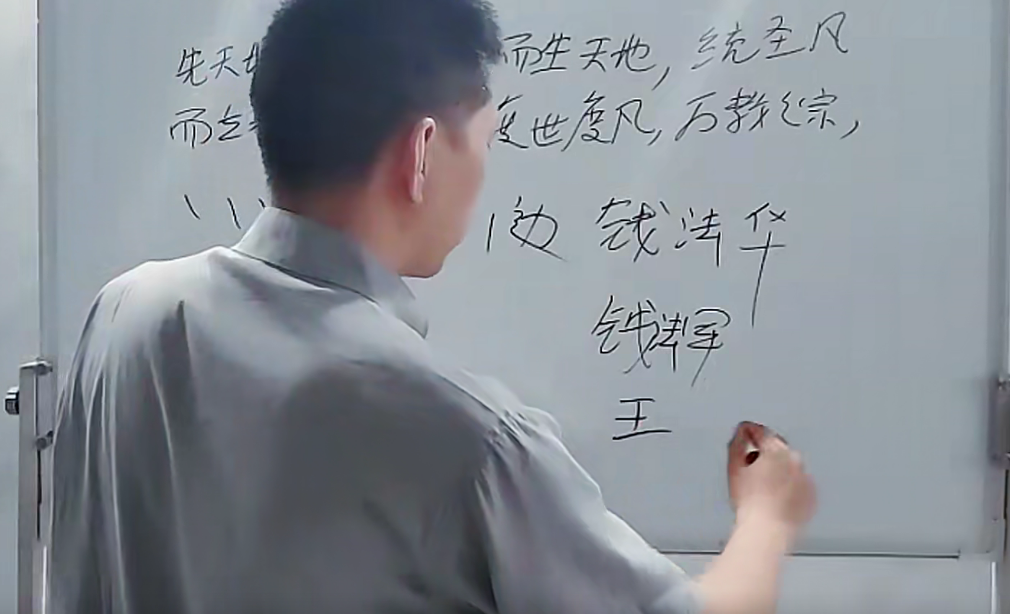 先天 而生天地,统圣凡
而立 度世度凡,万教之宗,
钱法华
钱
王